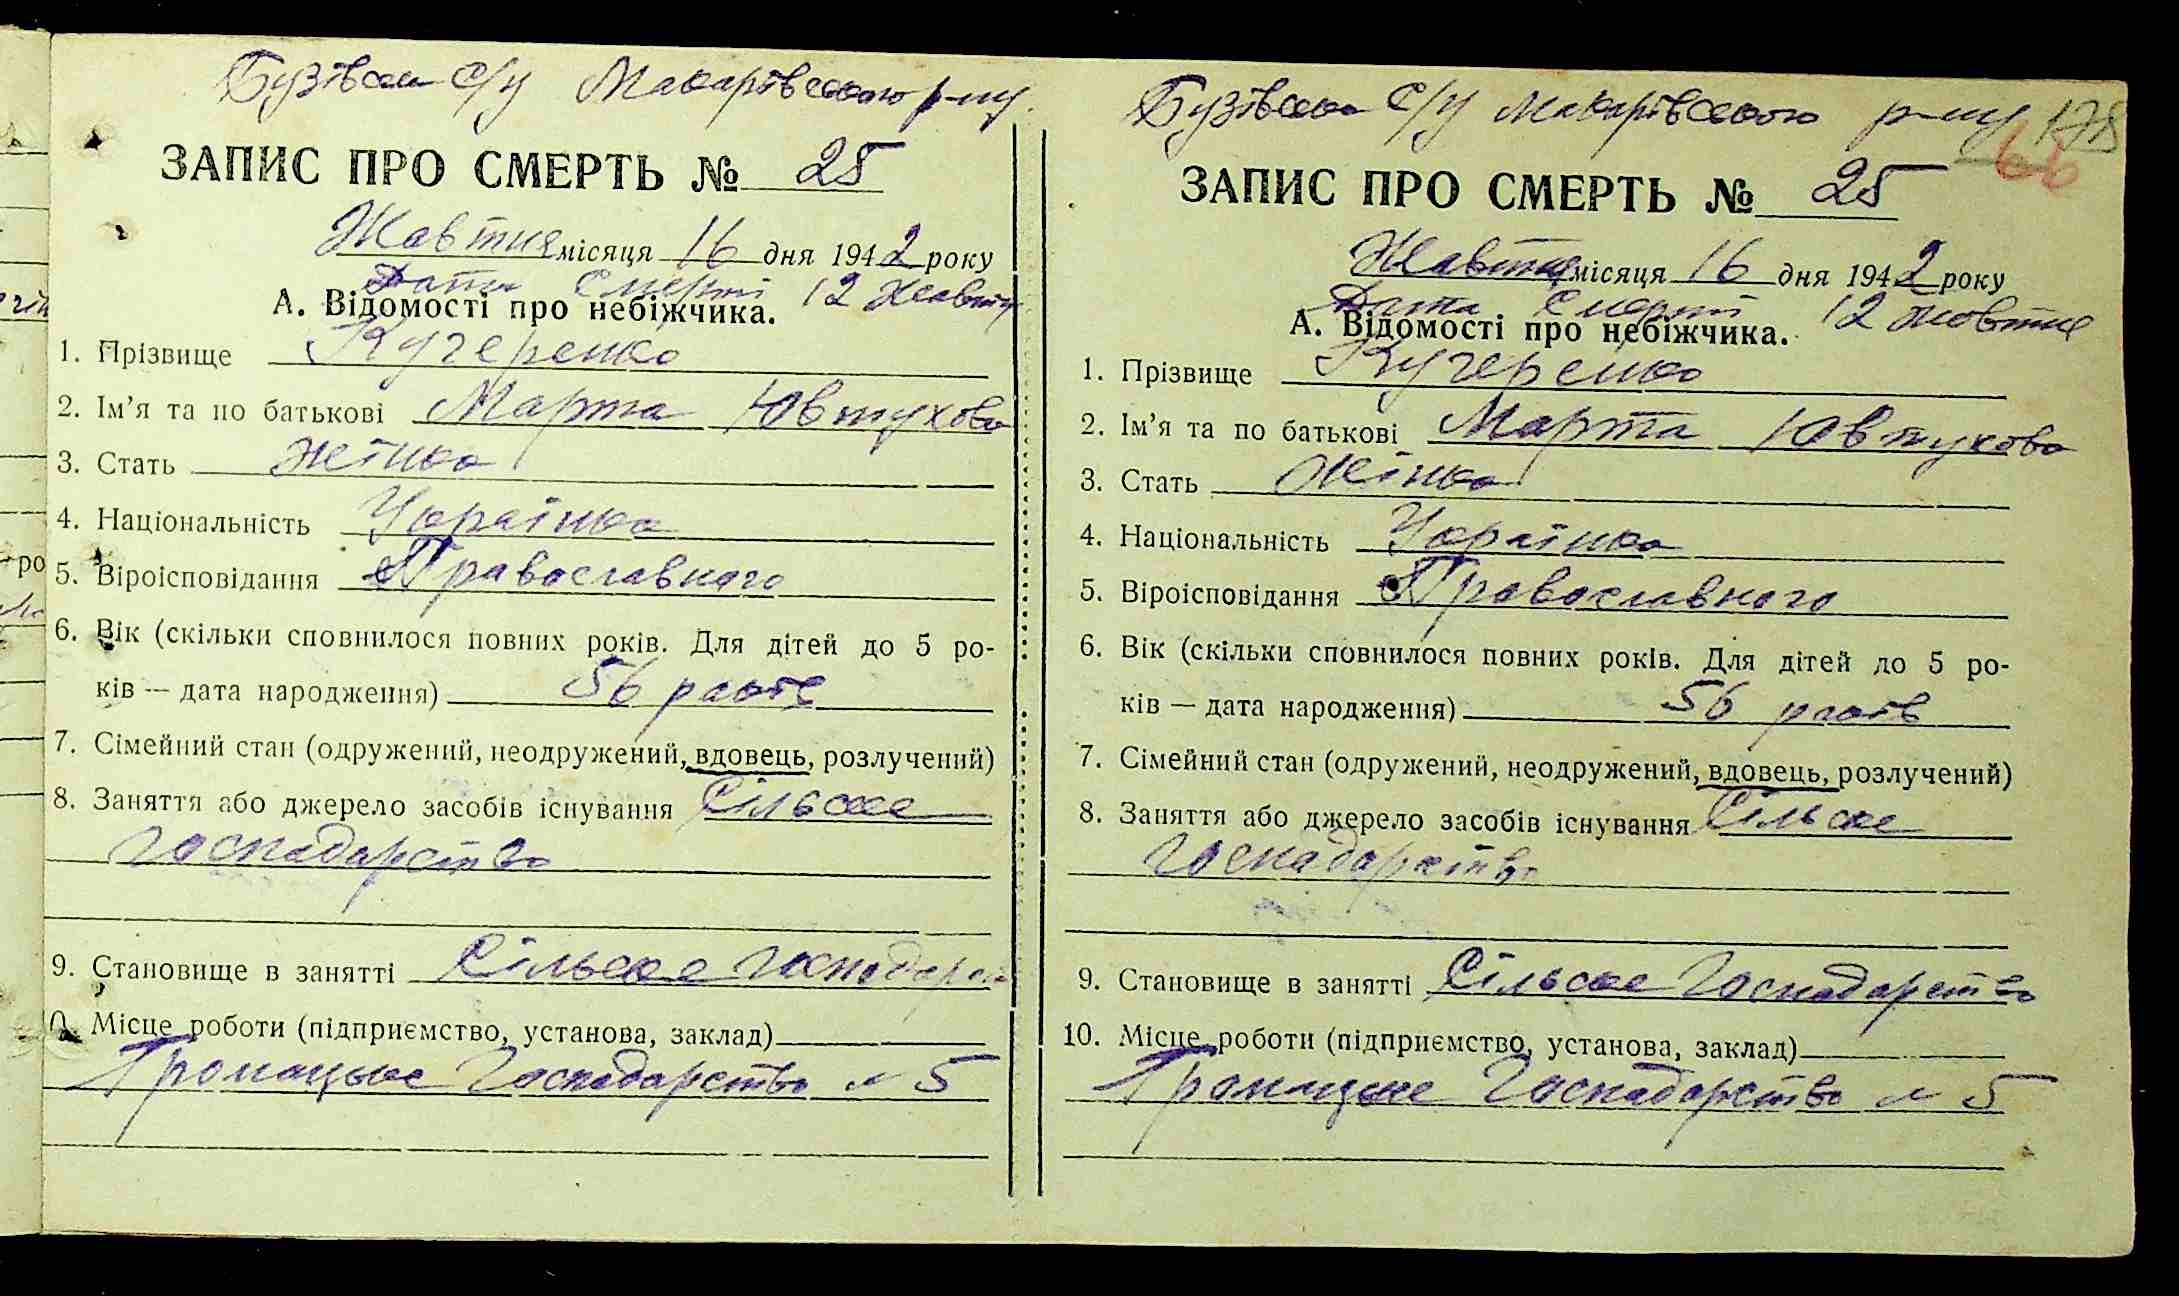 Бузівська с/у Макарівського р-ну.
ЗАПИС ПРО СМЕРТЬ № 25
Жовтня місяця 16 дня 1942 року
Дата Смерті 12 жовтня
А. Відомості про небіжчика.
1. Прізвище Кучеренко
2. Ім'я та по батькові Марта Ювтухова
3. Стать жінка
4. Національність Українка
5. Віроісповідання Православного
6. Вік (скільки сповнилося повних років. Для дітей до 5 ро-
ків — дата народження) 56 років
7. Сімейний стан (одружений, неодружений, вдовець, розлучений)
8. Заняття або джерело засобів існування Сільське
господарство
9. Становище в занятті Сільське господарс
0. Місце роботи (підприємство, установа, заклад)
Громадське Господарство № 5
Бузівська с/у Макарівського р-ну
178
66
ЗАПИС ПРО СМЕРТЬ № 25
Жовтня місяця 16 дня 1942 року
Дата Смерті 12 жовтня
А. Відомості про небіжчика.
1. Прізвище Кучеренко
2. Ім'я та по батькові Марта Ювтухова
3. Стать Жінка
4. Національність Українка
5. Віроісповідання Православного
6. Вік (скільки сповнилося повних років. Для дітей до 5 ро-
ків — дата народження) 56 років
7. Сімейний стан (одружений, неодружений, вдовець, розлучений)
8. Заняття або джерело засобів існування Сільське
господарство
9. Становище в занятті Сільське Господарство
10. Місце роботи (підприємство, установа, заклад)
Громадське Господарство № 5